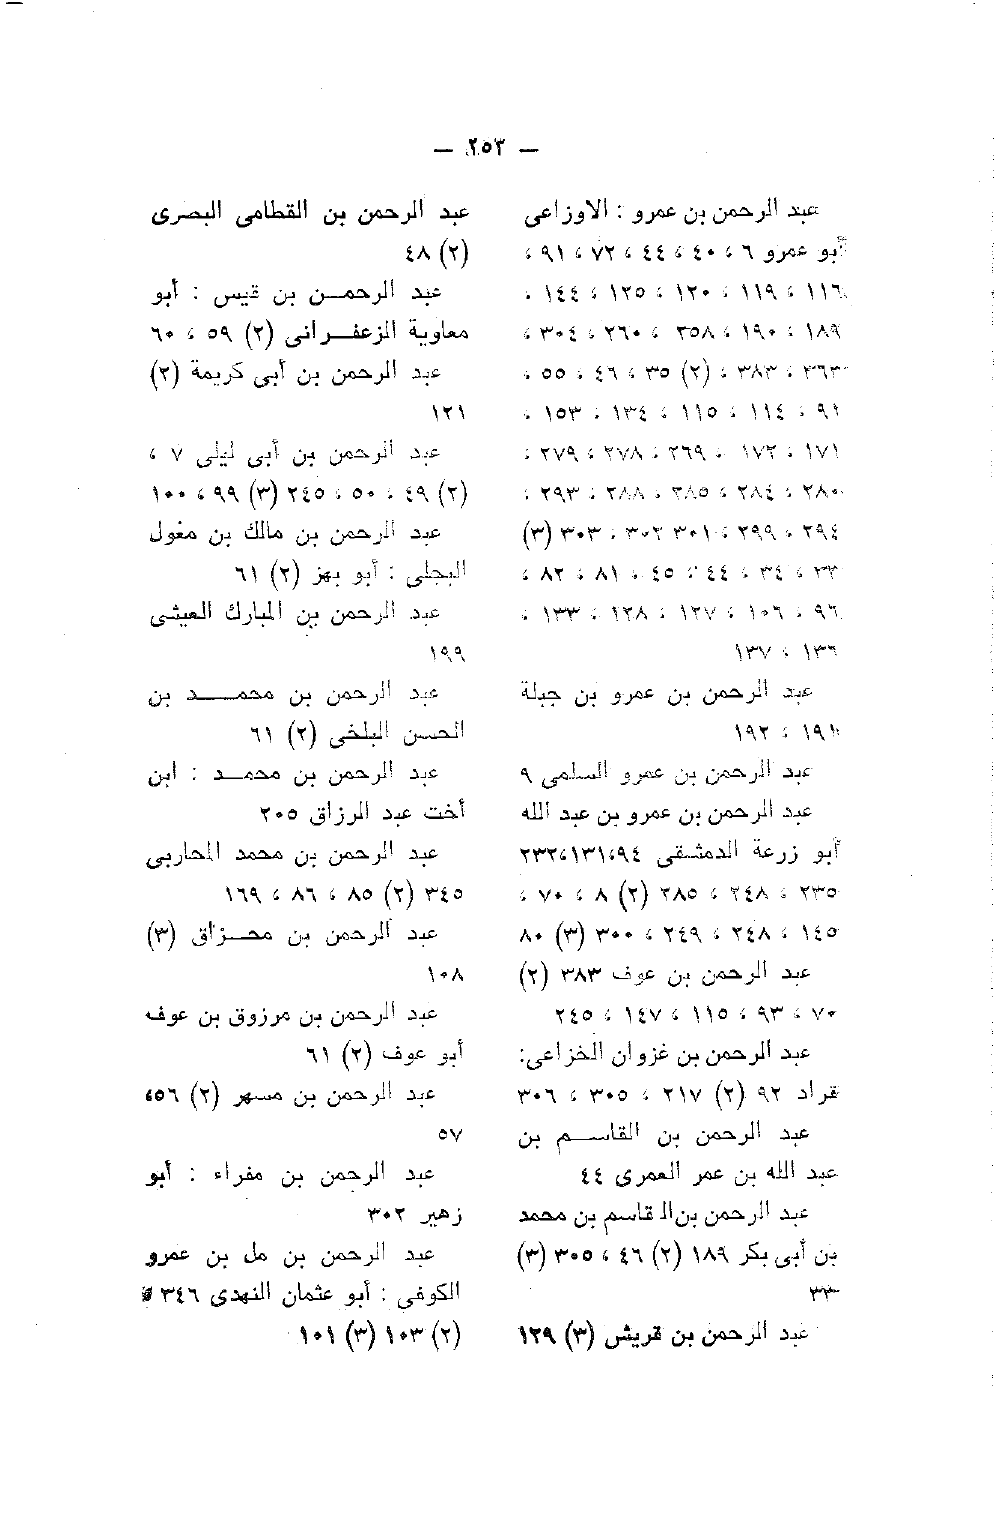 — ٢٥٣ —
عبد الرحمن بن عمرو : الاوزاعى
أبو عمرو ٦ ، ٤٠ ، ٤٤ ، ٧٢ ، ٩١ ،
١١٦ ، ١١٩ ، ١٢٠ ، ١٢٥ ، ١٤٤ ،
١٨٩ ، ١٩٠ ، ٢٥٨ ، ٢٦٠ ، ٣٠٤ ،
٣٦٣ ، ٣٨٣ ، (٢) ٣٥ ، ٤٦ ، ٥٥ ،
٩١ ، ١١٤ ، ١١٥ ، ١٣٤ ، ١٥٣ ،
١٧١ ، ١٧٢ ، ٢٦٩ ، ٢٧٨ ، ٢٧٩ ،
٢٨٠ ، ٢٨٤ ، ٢٨٥ ، ٢٨٨ ، ٢٩٣ ،
٢٩٤ ، ٢٩٩ ، ٣٠١ ٣٠٢ ، ٣٠٣ (٣)
٣٣ ، ٣٤ ، ٤٤ ، ٤٥ ، ٨١ ، ٨٢ ،
٩٦ ، ١٠٦ ، ١٢٧ ، ١٢٨ ، ١٣٣ ،
١٣٦ ، ١٣٧
عبد الرحمن بن عمرو بن جبلة
١٩١ ، ١٩٢
عبد الرحمن بن عمرو السلمى ٩
عبد الرحمن بن عمرو بن عبد الله
أبو زرعة الدمشقى ٩٤،١٣١،٢٣٢
٢٣٥ ، ٢٤٨ ، ٢٨٥ (٢) ٨ ، ٧٠ ،
١٤٥ ، ٢٤٨ ، ٢٤٩ ، ٣٠٠ (٣) ٨٠
عبد الرحمن بن عوف ٣٨٣ (٢)
٧٠ ، ٩٣ ، ١١٥ ، ١٤٧ ، ٢٤٥
عبد الرحمن بن غزوان الخزاعى:
قراد ٩٢ (٢) ٢١٧ ، ٣٠٥ ، ٣٠٦
عبد الرحمن بن القاسم بن
عبد الله بن عمر العمرى ٤٤
عبد الرحمن بن القاسم بن محمد
بن أبى بكر ١٨٩ (٢) ٤٦ ، ٣٠٥ (٣)
٣٣
عبد الرحمن بن قريش (٣) ١٢٩
عبد الرحمن بن القطامى البصرى
(٢) ٤٨
عبد الرحمن بن قيس : أبو
معاوية الزعفرانى (٢) ٥٩ ، ٦٠
عبد الرحمن بن أبى كريمة (٢)
١٢١
عبد الرحمن بن أبى ليلى ٧ ،
(٢) ٤٩ ، ٥٠ ، ٢٤٥ (٣) ٩٩ ، ١٠٠
عبد الرحمن بن مالك بن مغول
البجلى : أبو بهز (٢) ٦١
عبد الرحمن بن المبارك العيشى
١٩٩
عبد الرحمن بن محمد بن
الحسن البلخى (٢) ٦١
عبد الرحمن بن محمد : ابن
أخت عبد الرزاق ٢٠٥
عبد الرحمن بن محمد المحاربى
٣٤٥ (٢) ٨٥ ، ٨٦ ، ١٦٩
عبد الرحمن بن محزاق (٣)
١٠٨
عبد الرحمن بن مرزوق بن عوف
أبو عوف (٢) ٦١
عبد الرحمن بن مسهر (٢) ٥٦،
٥٧
عبد الرحمن بن مغراء : أبو
زهير ٣٠٢
عبد الرحمن بن مل بن عمرو
الكوفى : أبو عثمان النهدى ٣٤٦
(٢) ١٠٣ (٣) ١٠١